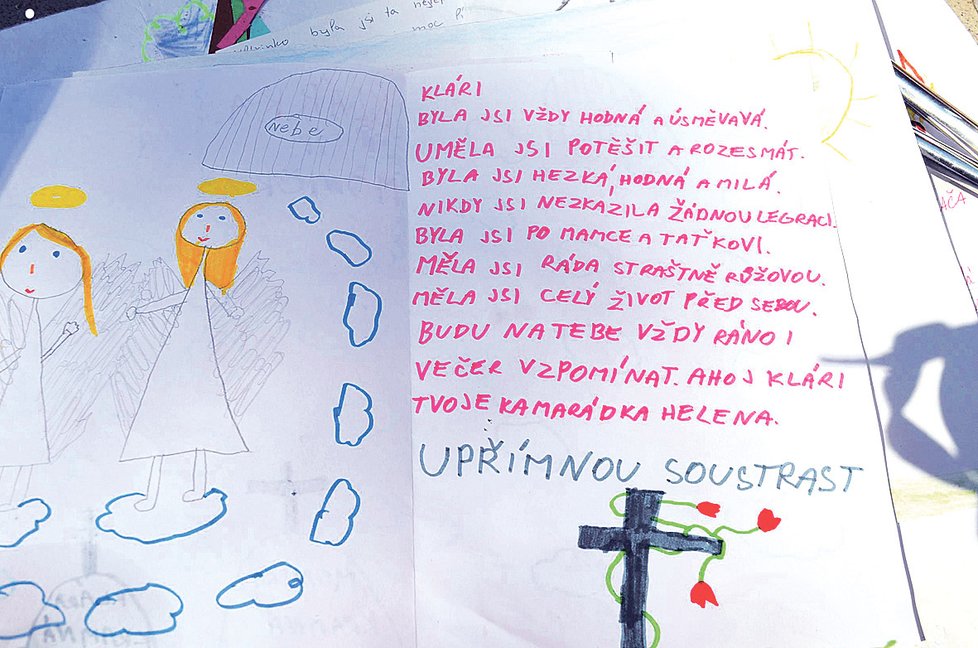 byla jsi ta nejlep
moc
Nebe
KLÁRI
BYLA JSI VŽDY HODNÁ A ÚSMĚVAVÁ.
UMĚLA JSI POTĚŠIT A ROZESMÁT.
BYLA JSI HEZKÁ, HODNÁ A MILÁ.
NIKDY JSI NEZKAZILA ŽÁDNOU LEGRACI.
BYLA JSI PO MAMCE A TAŤKOVI.
MĚLA JSI RÁDA STRAŠTNĚ RŮŽOVOU.
MĚLA JSI CELÝ ŽIVOT PŘED SEBOU.
BUDU NA TEBE VŽDY RÁNO I
VEČER VZPOMÍNAT. AHOJ KLÁRI
TVOJE KAMARÁDKA HELENA.
UPŘÍMNOU SOUSTRAST